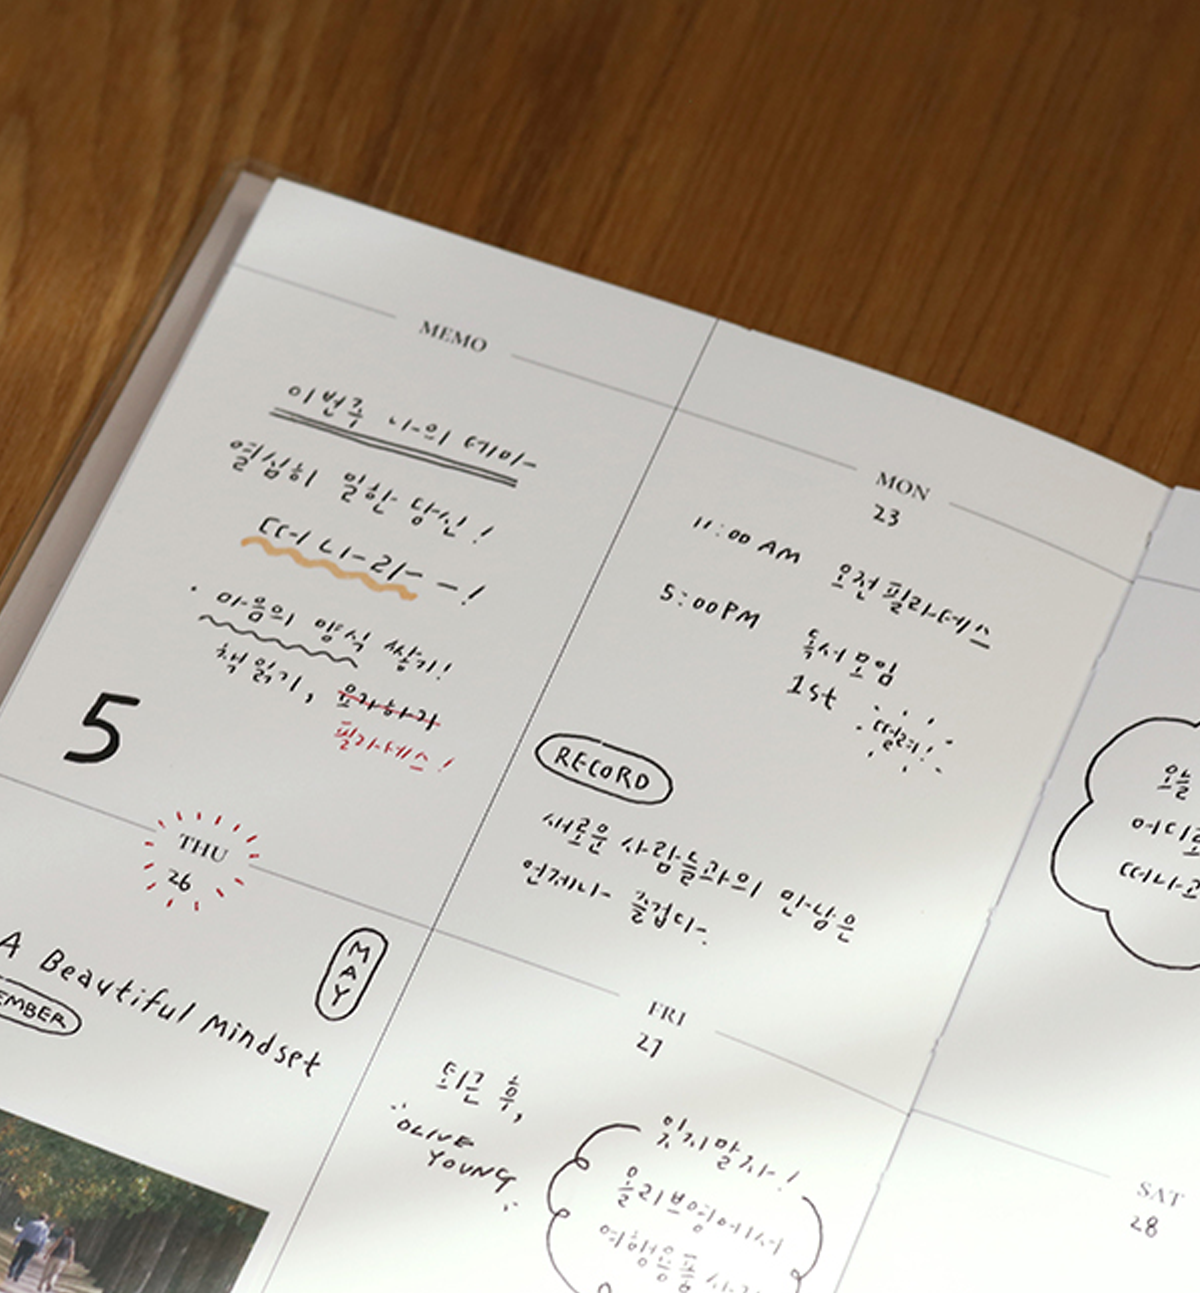 MEMO
이번주 나의 테마
열심히 일한 당신!
떠나라ㅡ!
· 마음의 양식 쌓기!
책 읽기, 요가하기
필라테스!
5
MON
23
11:00 AM 오전 필라테스
5:00PM 독서모임
1st 떨려!
RECORD
새로운 사람들과의 만남은
언제나 즐겁다.
오늘
어디로
떠나고
THU
26
MAY
A Beautiful Mindset
EMBER
FRI
27
퇴근 후,
OLIVE
YOUNG
잊지말자!
올리브영에서
여행용품
SAT
28